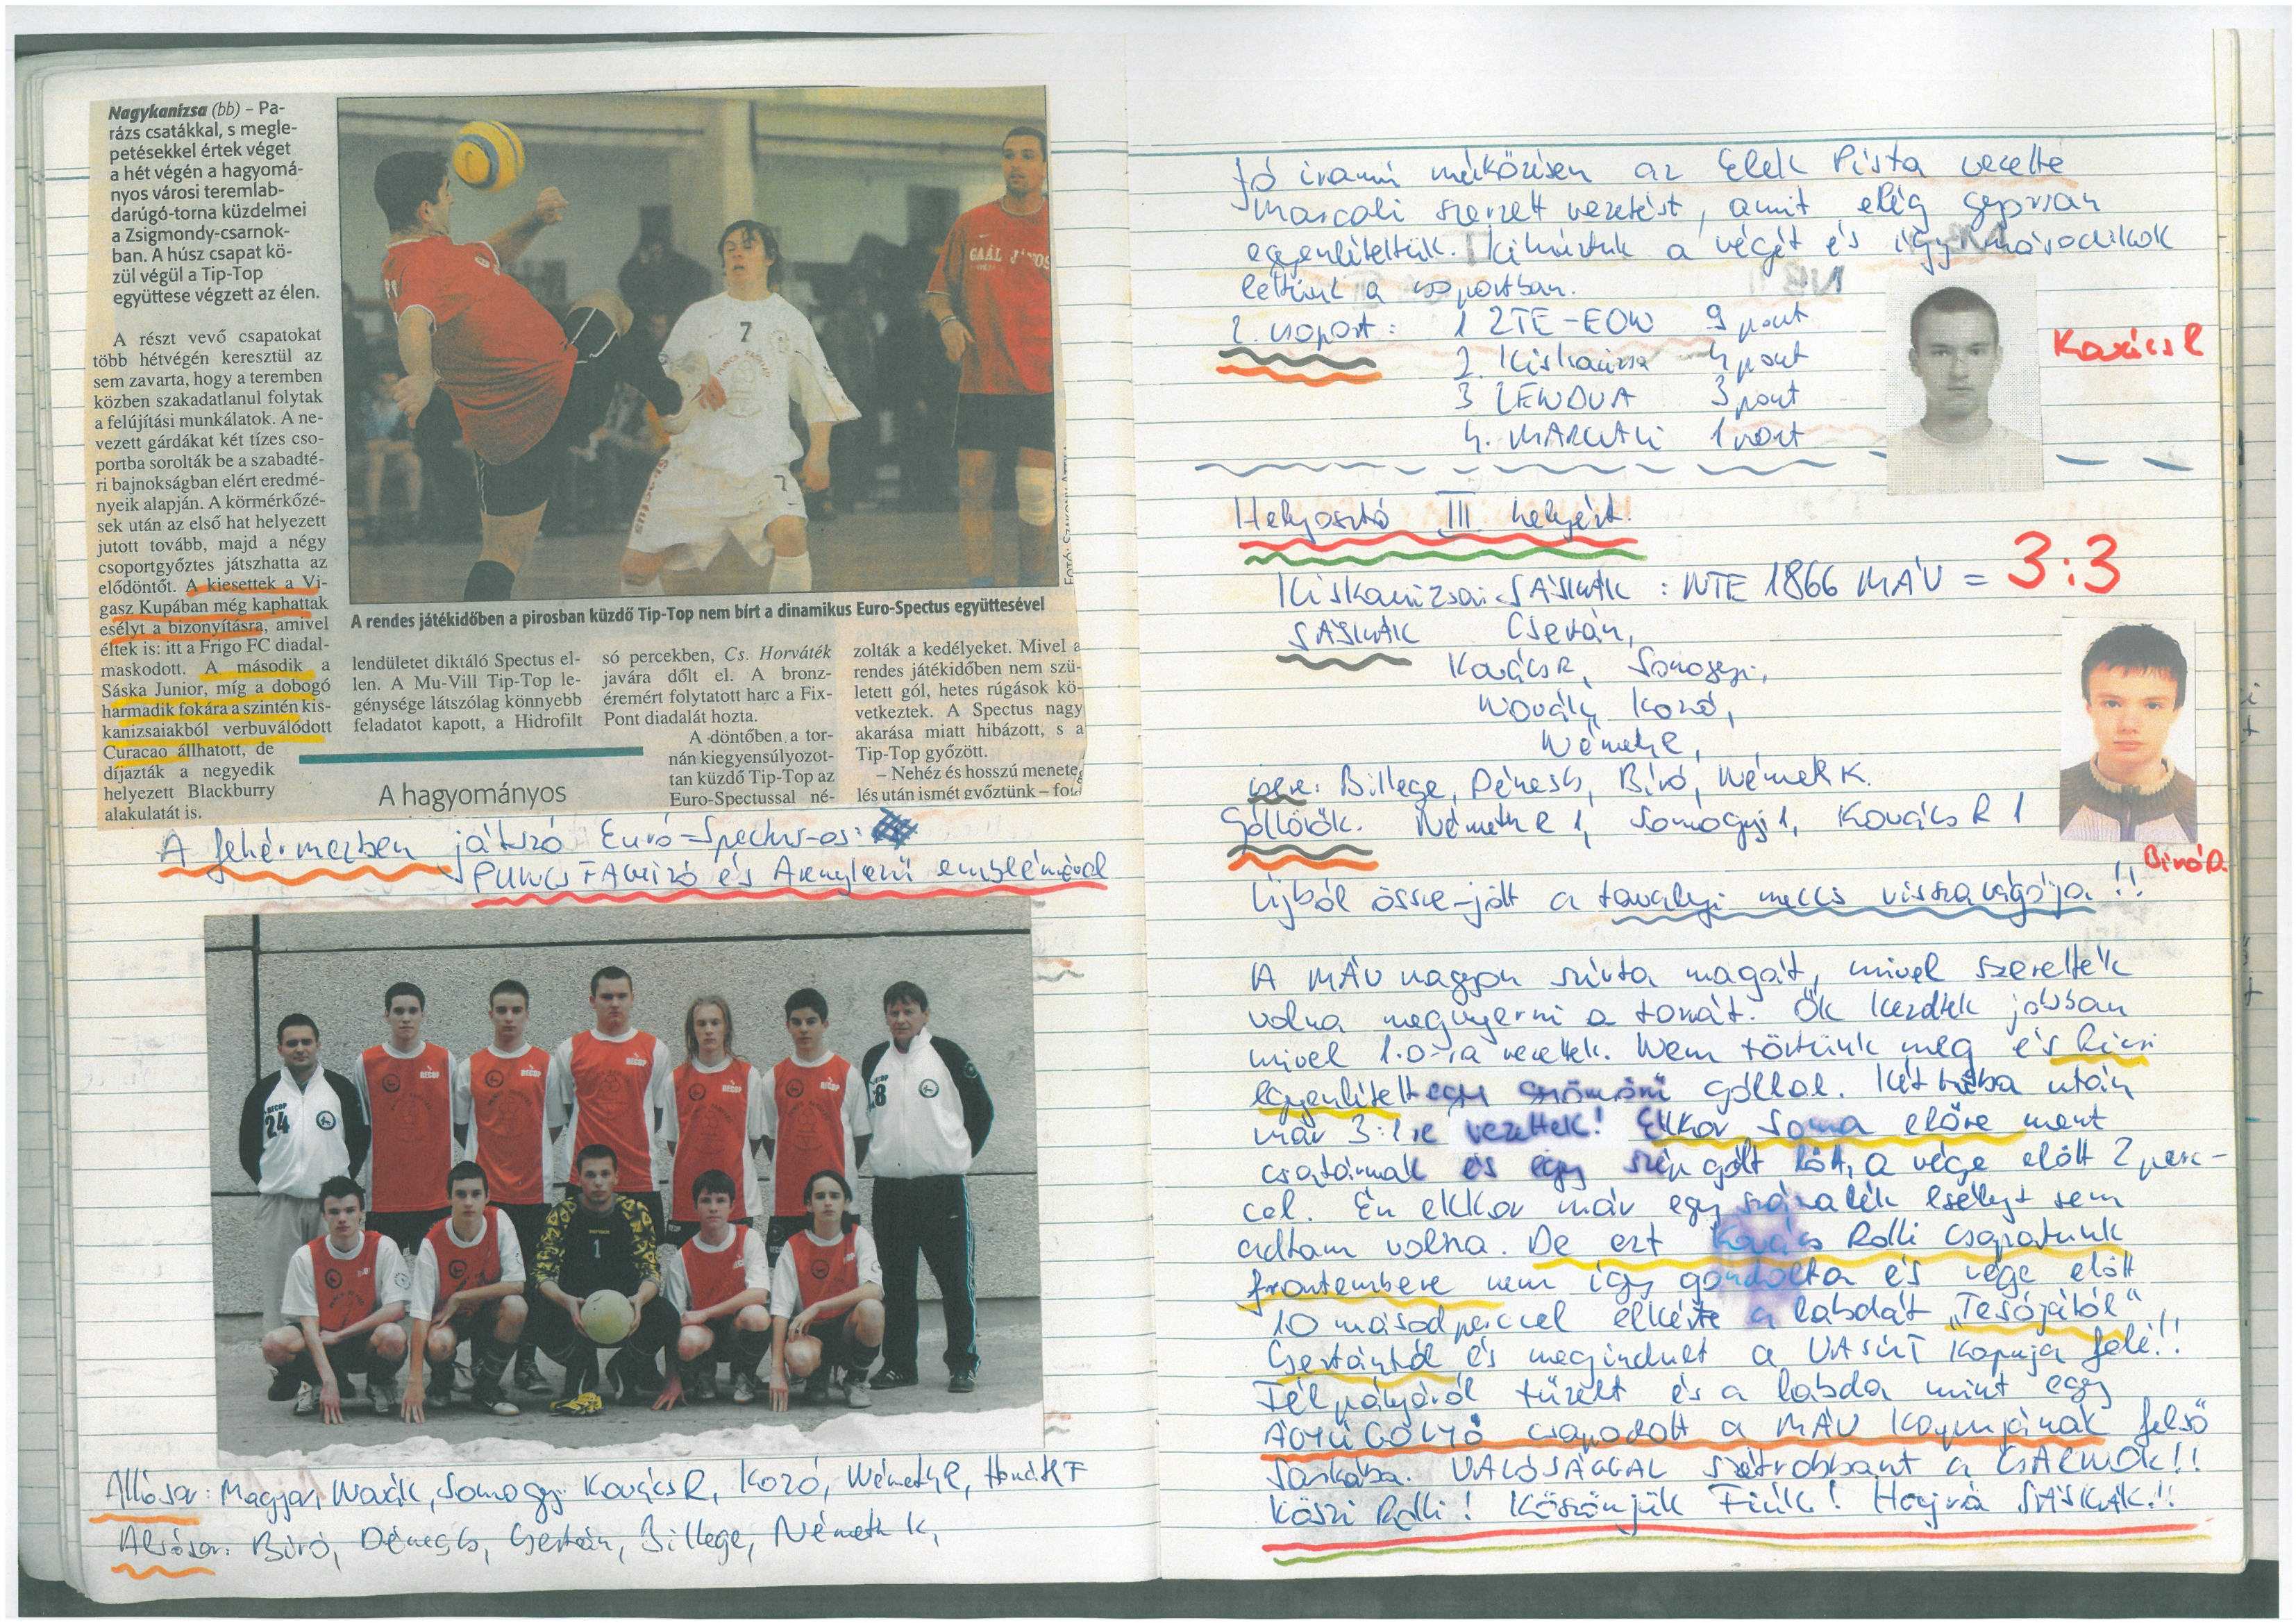 Nagykanizsa (bb) – Pa-
rázs csatákkal, s megle-
petésekkel értek véget
a hét végén a hagyomá-
nyos városi teremlab-
darúgó-torna küzdelmei
a Zsigmondy-csarnok-
ban. A húsz csapat kö-
zül végül a Tip-Top
együttese végzett az élen.
A részt vevő csapatokat
több hétvégén keresztül az
sem zavarta, hogy a teremben
közben szakadatlanul folytak
a felújítási munkálatok. A ne-
vezett gárdákat két tízes cso-
portba sorolták be a szabadté-
ri bajnokságban elért eredmé-
nyeik alapján. A körmérkőzé-
sek után az első hat helyezett
jutott tovább, majd a négy
csoportgyőztes játszhatta az
elődöntőt. A kiesettek a Vi-
gasz Kupában még kaphattak
esélyt a bizonyításra, amivel
éltek is: itt a Frigo FC diadal-
maskodott. A második a
Sáska Junior, míg a dobogó
harmadik fokára a szintén kis-
kanizsaiakból verbuválódott
Curacao állhatott, de
díjazták a negyedik
helyezett Blackburry
alakulatát is.
GAÁL JÁNOS
7
7
A rendes játékidőben a pirosban küzdő Tip-Top nem bírt a dinamikus Euro-Spectus együttesével
lendületet diktáló Spectus el-
len. A Mu-Vill Tip-Top le-
génysége látszólag könnyebb
feladatot kapott, a Hidrofilt
A hagyományos
só percekben, Cs. Horváték
javára dőlt el. A bronz-
éremért folytatott harc a Fix-
Pont diadalát hozta.
A döntőben a tor-
nán kiegyensúlyozot-
tan küzdő Tip-Top az
Euro-Spectussal né-
zolták a kedélyeket. Mivel a
rendes játékidőben nem szü-
letett gól, hetes rúgások kö-
vetkeztek. A Spectus nagy
akarása miatt hibázott, s a
Tip-Top győzött.
– Nehéz és hosszú menete
lés után ismét győztünk – fo
A fehérmezben játszó Euró-Spectus-os:
és emblémával
BECOP
BECOP
BECOP
BECOP
BECOP
24
8
1
Állósor: Magyar, Novák, Somogyi Kovács R, Kozó, Németh R, Horváth F
Alsósor: Biró, Dénes G, Csertán, Billege, Németh K,
Jó iramú mérkőzésen az Elek Pista vezette
Marcali szerzett vezetést, amit elég gyorsan
egyenlítettük. Kihúztuk a végét és így másodikok
lettünk a csoportban.
2. csoport: 1 ZTE-EOW 9 pont
2. Kiskanizsa 4 pont
3 LENDVA 3 pont
4. MARCALI 1 pont
Kovács R
Helyosztó III helyért.
Kiskanizsai SÁSKÁK : NTE 1866 MÁV = 3:3
SÁSKÁK Csertán,
Kovács R, Somogyi,
Novák, Kozó,
Németh R,
csere: Billege, Dénes G, Biró, Németh K.
Góllövők. Németh R 1, Somogyi 1, Kovács R 1
Biró D.
Újból össze-jött a tavalyi meccs visszavágója!!
A MÁV nagyon szívta magát, mivel szerették
volna megnyerni a tornát. Ők kezdtek jobban
mivel 1:0-ra vezettek. Nem törtünk meg és Ricsi
egyenlített egy gyönyörű góllal. Két hiba után
már 3:1re vezettek! Ekkor Soma előre ment
csatárnak és egy szép gólt lőtt, a vége előtt 2 perc-
cel. Én ekkor már egy százalék esélyt sem
adtam volna. De ezt Kovács Rolli csapatunk
frontembere nem így gondolta és vége előtt
10 másodperccel elkérte a labdát „Tesójától"
Csertántól és megindult a VASÚT kapuja felé!!
Félpályáról tüzelt és a labda mint egy
ÁGYÚGOLYÓ csapódott a MÁV kapujának felső
sarkába. VALÓSÁGGAL szétrobbant a CSARNOK!!
Köszi Rolli! Köszönjük Fiúk! Hajrá SÁSKÁK!!